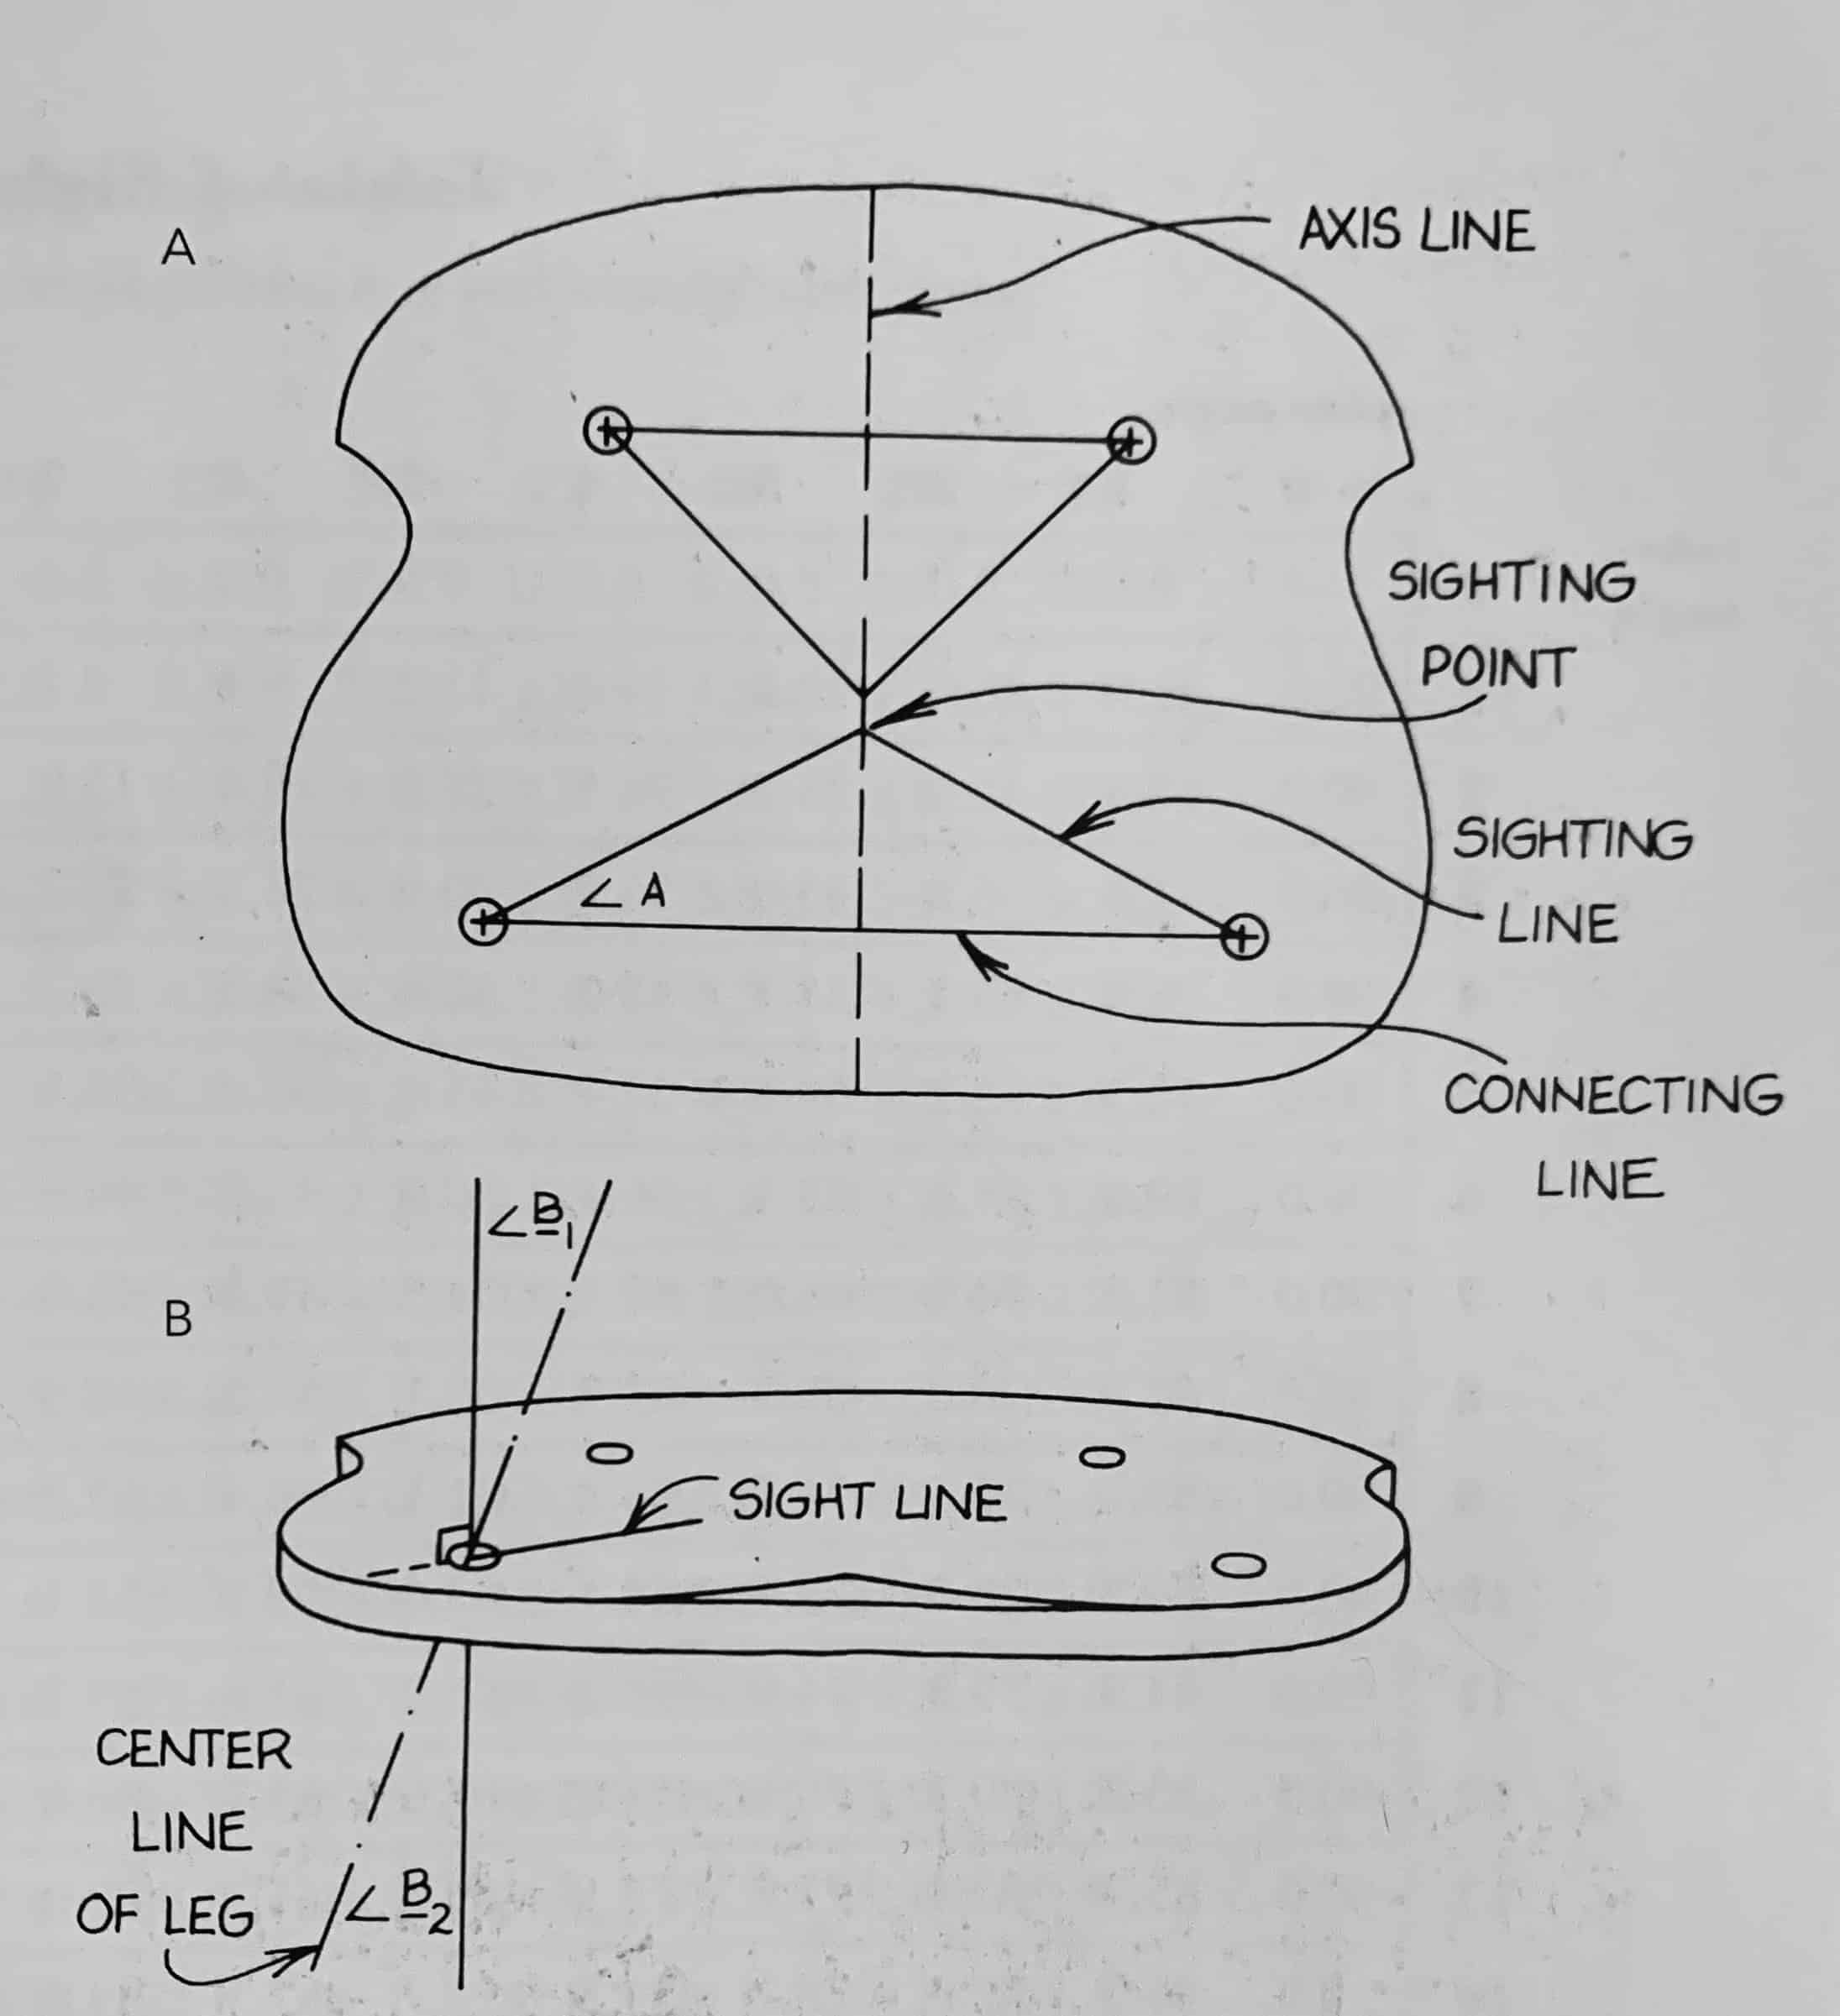 A
AXIS LINE
SIGHTING
POINT
SIGHTING
LINE
∠ A
CONNECTING
LINE
∠B1
B
SIGHT LINE
CENTER
LINE
OF LEG
∠B2